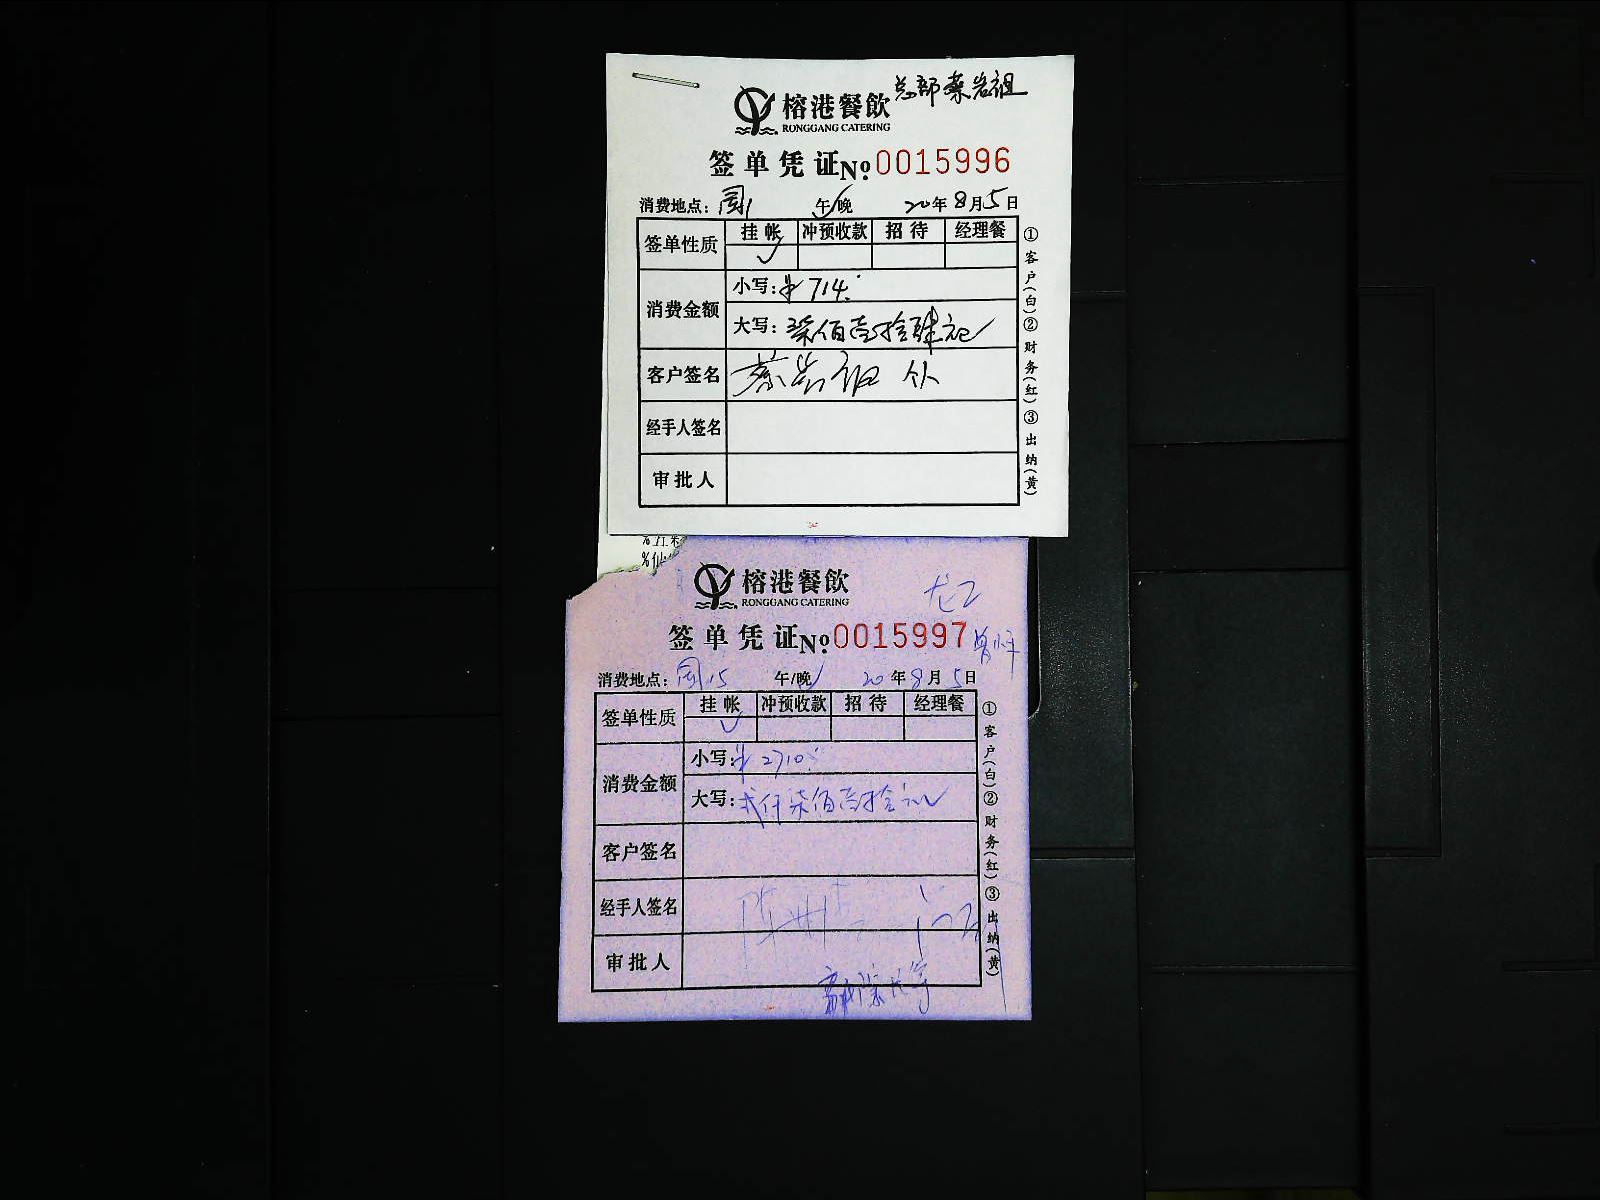 总部 蔡岩祖
榕港餐飲
RONGGANG CATERING
签单凭证 No: 0015996
消费地点: 午/晚 20年8月5日
签单性质 挂帐 冲预收款 招待 经理餐
消费金额 小写: ¥714.
大写: 柒佰壹拾肆元
客户签名 蔡岩祖
经手人签名
审批人
①客户(白)②财务(红)③出纳(黄)
榕港餐飲
RONGGANG CATERING
签单凭证 No: 0015997
消费地点: 午/晚 20年8月5日
签单性质 挂帐 冲预收款 招待 经理餐
消费金额 小写: ¥2710.
大写: 贰仟柒佰壹拾元
客户签名
经手人签名
审批人
①客户(白)②财务(红)③出纳(黄)